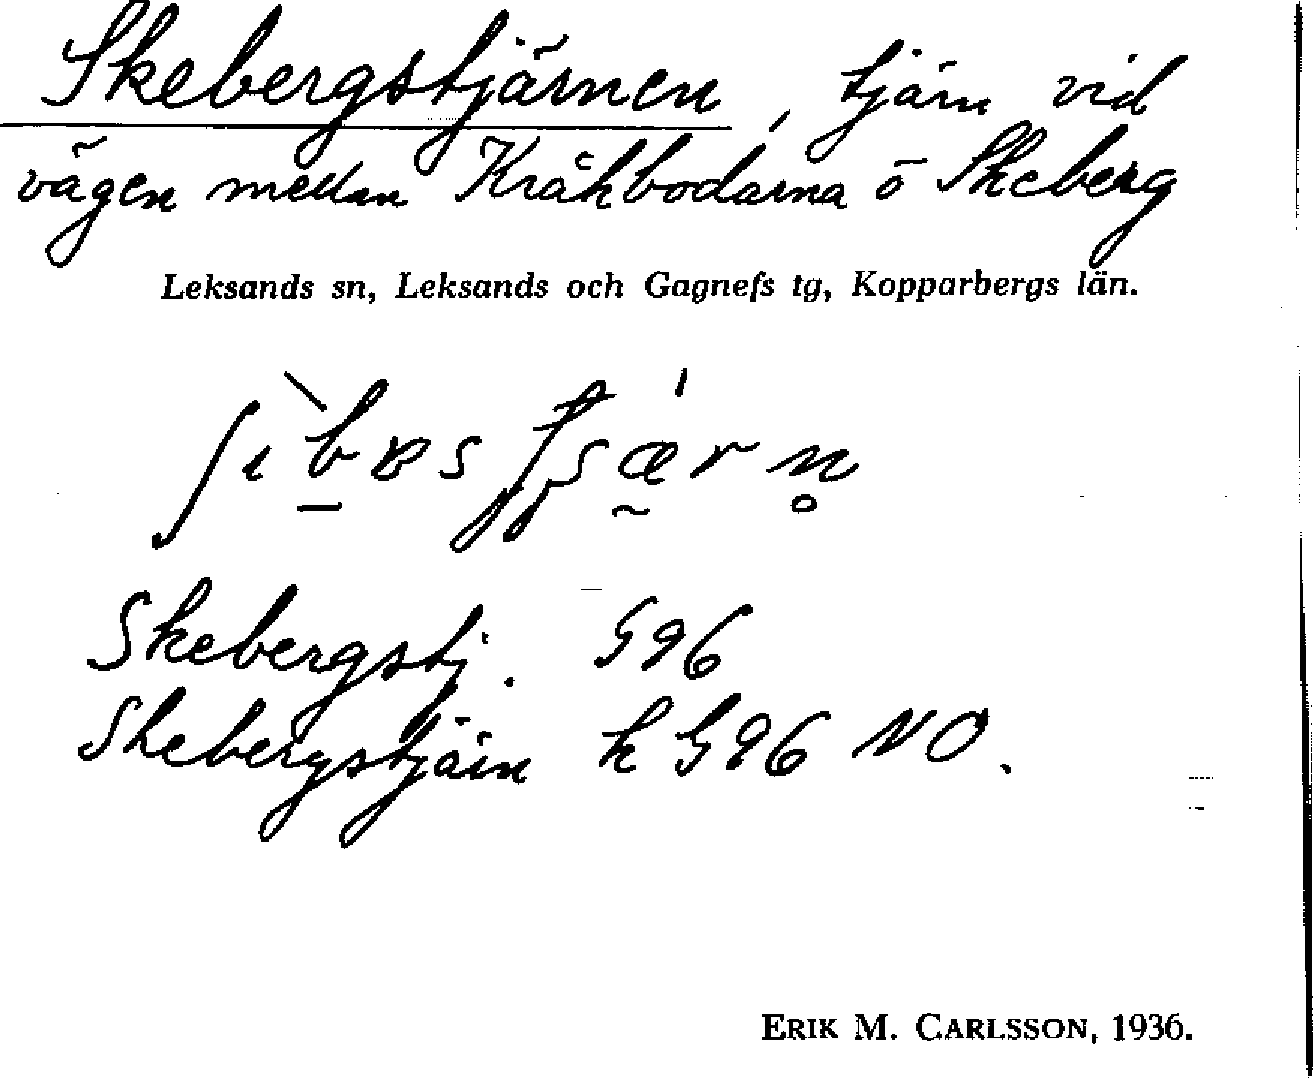 Skebergstjärnen, tjärn vid
vägen mellan Kråkbodarna o Skeberg
Leksands sn, Leksands och Gagnefs tg, Kopparbergs län.
Skebergstj. G96
Skebergstjärn k G96 NO.
ERIK M. CARLSSON, 1936.